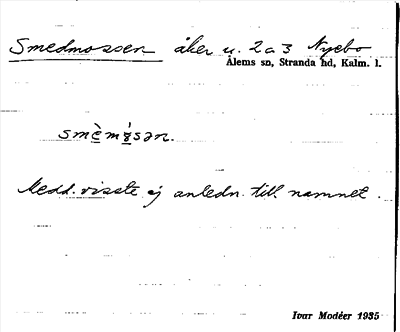 Smedmossen åker u. 2 a 3 Nyebo
Ålems sn, Stranda hd, Kalm. l.
Medd. visste ej anledn. till namnet.
Ivar Modéer 1935